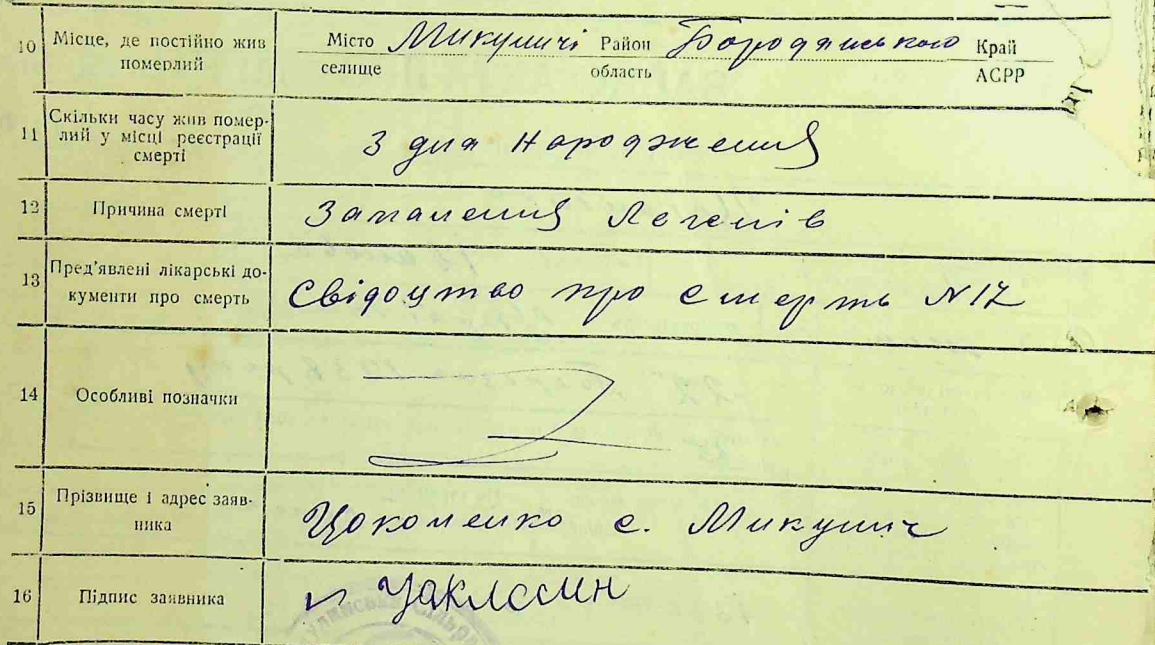 10 Місце, де постійно жив померлий Місто селище Микуличі Район область Бородянського Край АСРР
11 Скільки часу жив помер-
лий у місці реєстрації
смерті
З дня народження
12 Причина смерті Запалення Легенів
13 Пред'явлені лікарські до-
кументи про смерть
Свідоцтво про смерть N 17
14 Особливі позначки
15 Прізвище і адрес заяв-
ника
с. Микулич
16 Підпис заявника